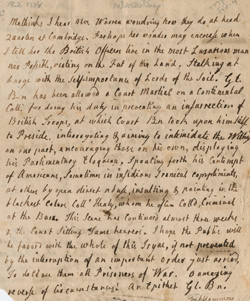 Methinks I hear Mrs Warren wondering how they do at head
Quarters at Cambridge. Perhaps her wonder may encrease when
I tell her the British Officers live in the most Luxurious man
ner Possible, rioting on the Fat of the Land, Stalking at
large with the Self importance of Lords of the Soil. Gl.
B—n has been allowed a Court Martial on a Continental
Coll: for doing his duty in preventing an insurrection of
British troops, at which Court B—n took upon himself
to Preside, interrogating & aiming to intimidate the Witness
on our part, encouraging those on his own, displaying
his Parliamentary Eloquence, Spouting forth his Contempt
of Americans, Sometimes in insidious Ironical compliments,
at others by open direct abuse, insulting & painting in the
blackest colors Coll Henly, whom he often Call'd Criminal
at the Barr. This scene has continued almost three weeks
the Court Sitting Some hearers. I hope the Public will
be favord with the whole of this, if not prevented
by the interruption of an important order just arriv'd
To declare them all Prisoners of War. O amazing
reverse of Circumstances! An Epithet Gl. B—n